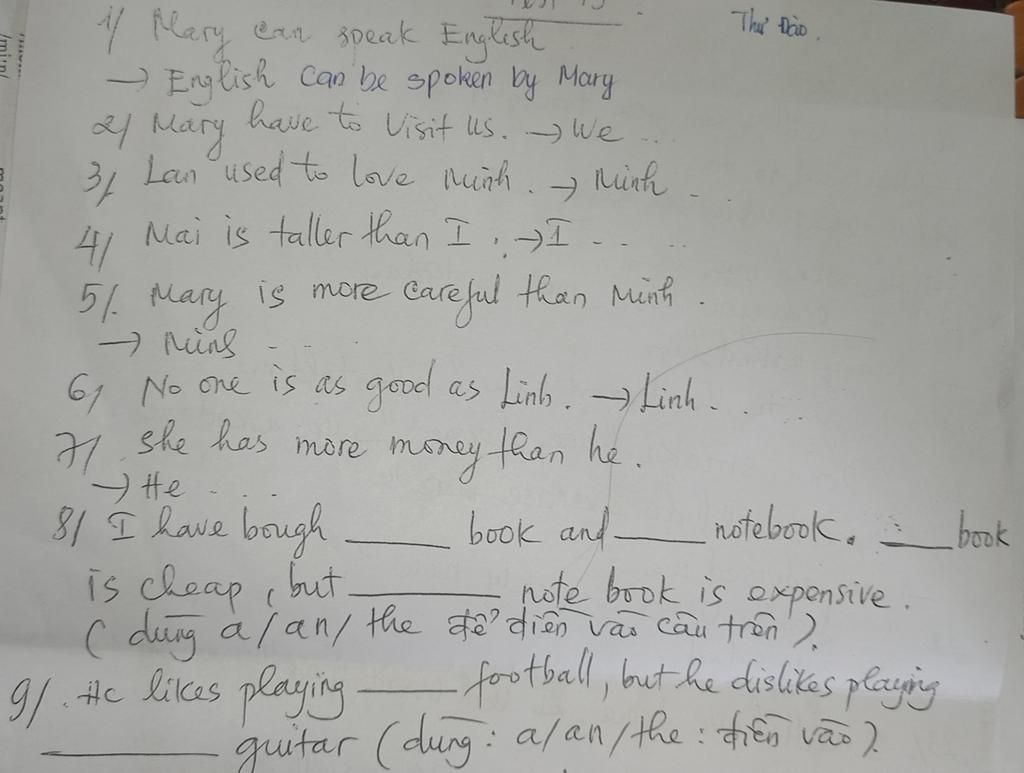 Thư Đào.
1/ Mary can speak English
→ English can be spoken by Mary
2/ Mary have to visit us. → We ...
3/ Lan used to love Minh. → Minh ...
4/ Mai is taller than I. → I ... ..
5/. Mary is more careful than Minh.
→ Minh ...
6/ No one is as good as Linh. → Linh ...
7/ she has more money than he.
→ He ...
8/ I have bough ____ book and ____ notebook. ____ book
is cheap, but ____ note book is expensive.
(dùng a/an/the để điền vào câu trên).
9/. He likes playing ____ football, but he dislikes playing
____ guitar (dùng: a/an/the: điền vào).